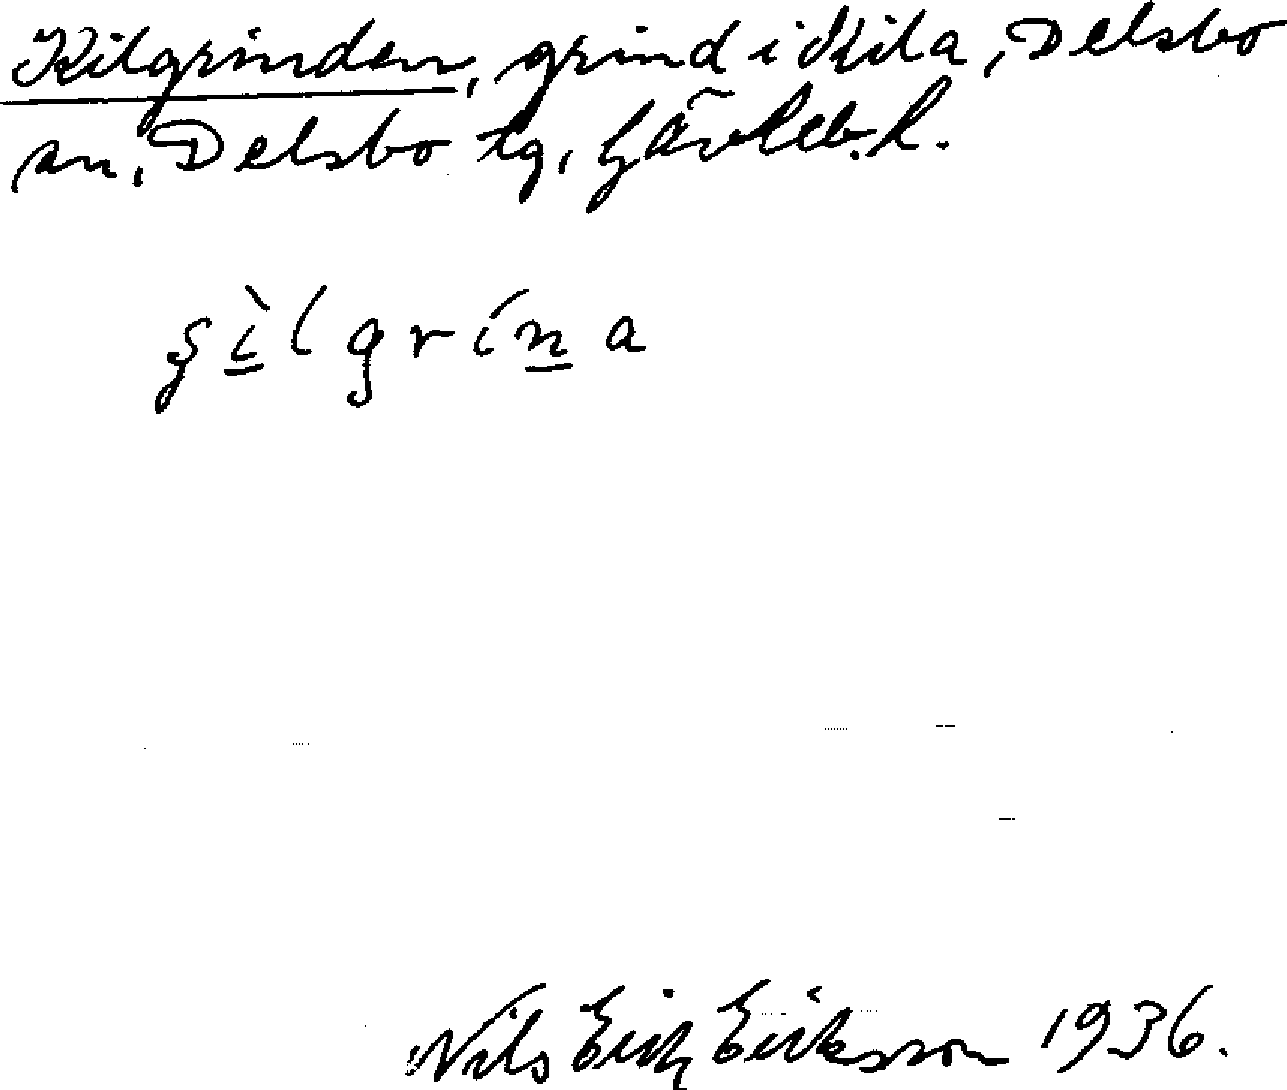 Kilgrinden, grind i Kila, Delsbo
sn, Delsbo tg, Gävleb. l.
Nils Erik Eriksson 1936.